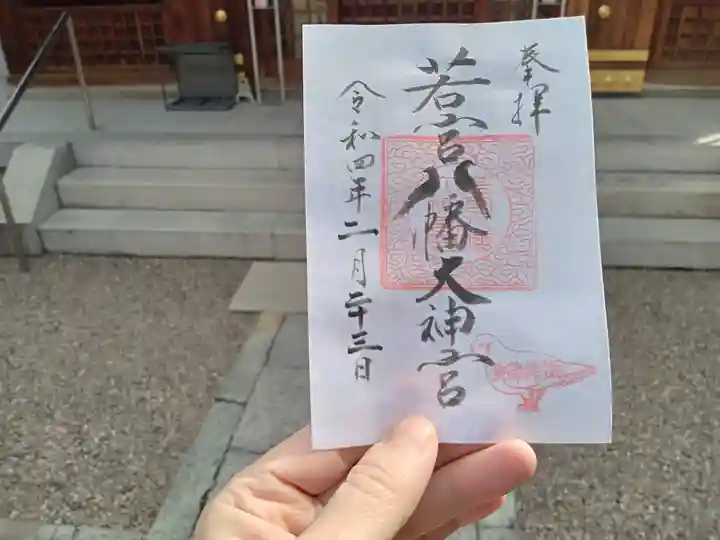 奉拝
若宮八幡大神宮
令和四年二月二十三日